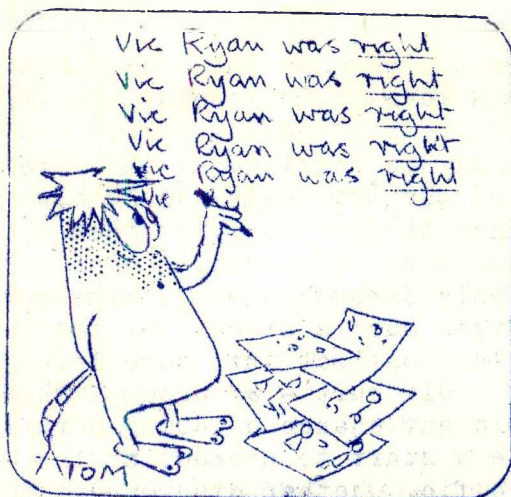 Vic Ryan was right
Vic Ryan was right
Vic Ryan was right
Vic Ryan was right
Vic Ryan was right
Vic Ry
TOM